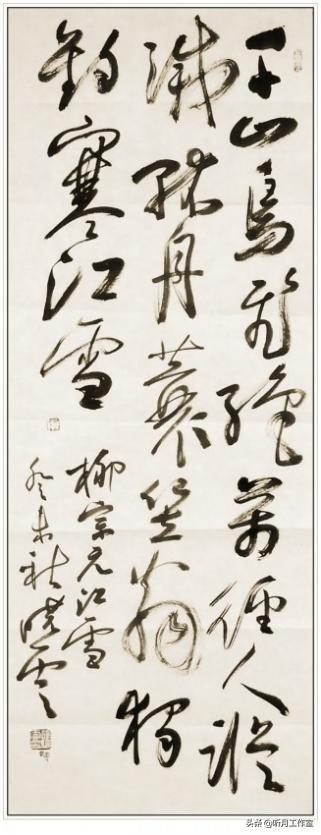 千山鳥飛絕萬徑人蹤
滅孤舟蓑笠翁獨
釣寒江雪
柳宗元江雪
癸未秋曉雲
头条 @听月工作室